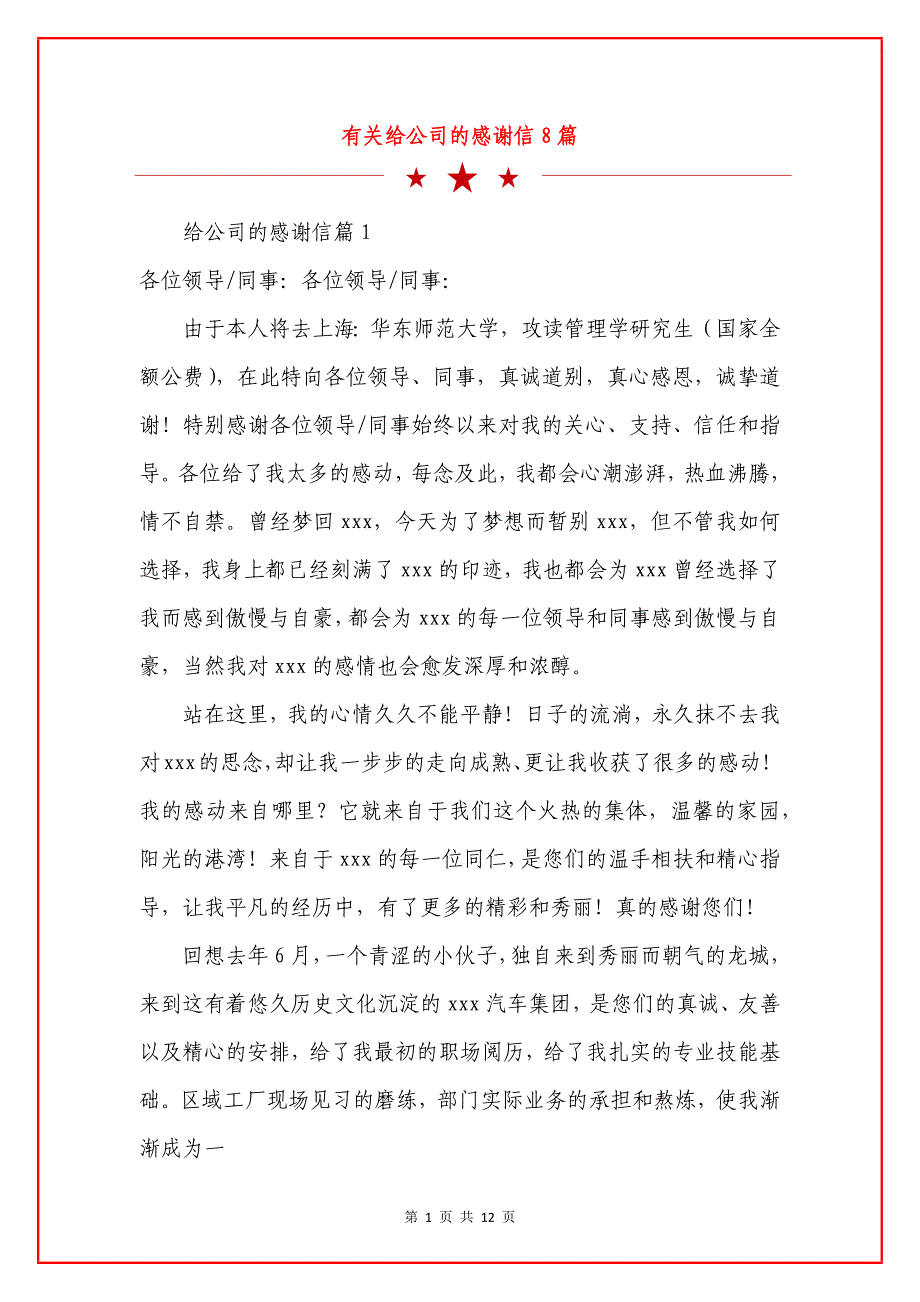 有关给公司的感谢信 8 篇
给公司的感谢信篇 1
各位领导/同事： 各位领导/同事：
由于本人将去上海：华东师范大学，攻读管理学研究生（国家全
额公费），在此特向各位领导、同事，真诚道别，真心感恩，诚挚道
谢！特别感谢各位领导/同事始终以来对我的关心、支持、信任和指
导。各位给了我太多的感动，每念及此，我都会心潮澎湃，热血沸腾，
情不自禁。曾经梦回 xxx，今天为了梦想而暂别 xxx，但不管我如何
选择，我身上都已经刻满了 xxx 的印迹，我也都会为 xxx 曾经选择了
我而感到傲慢与自豪，都会为 xxx 的每一位领导和同事感到傲慢与自
豪，当然我对 xxx 的感情也会愈发深厚和浓醇。
站在这里，我的心情久久不能平静！日子的流淌，永久抹不去我
对 xxx 的思念，却让我一步步的走向成熟、更让我收获了很多的感动！
我的感动来自哪里？它就来自于我们这个火热的集体，温馨的家园，
阳光的港湾！来自于 xxx 的每一位同仁，是您们的温手相扶和精心指
导，让我平凡的经历中，有了更多的精彩和秀丽！真的感谢您们！
回想去年 6 月，一个青涩的小伙子，独自来到秀丽而朝气的龙城，
来到这有着悠久历史文化沉淀的 xxx 汽车集团，是您们的真诚、友善
以及精心的安排，给了我最初的职场阅历，给了我扎实的专业技能基
础。区域工厂现场见习的磨练，部门实际业务的承担和熬炼，使我渐
渐成为一
第 1 页 共 12 页